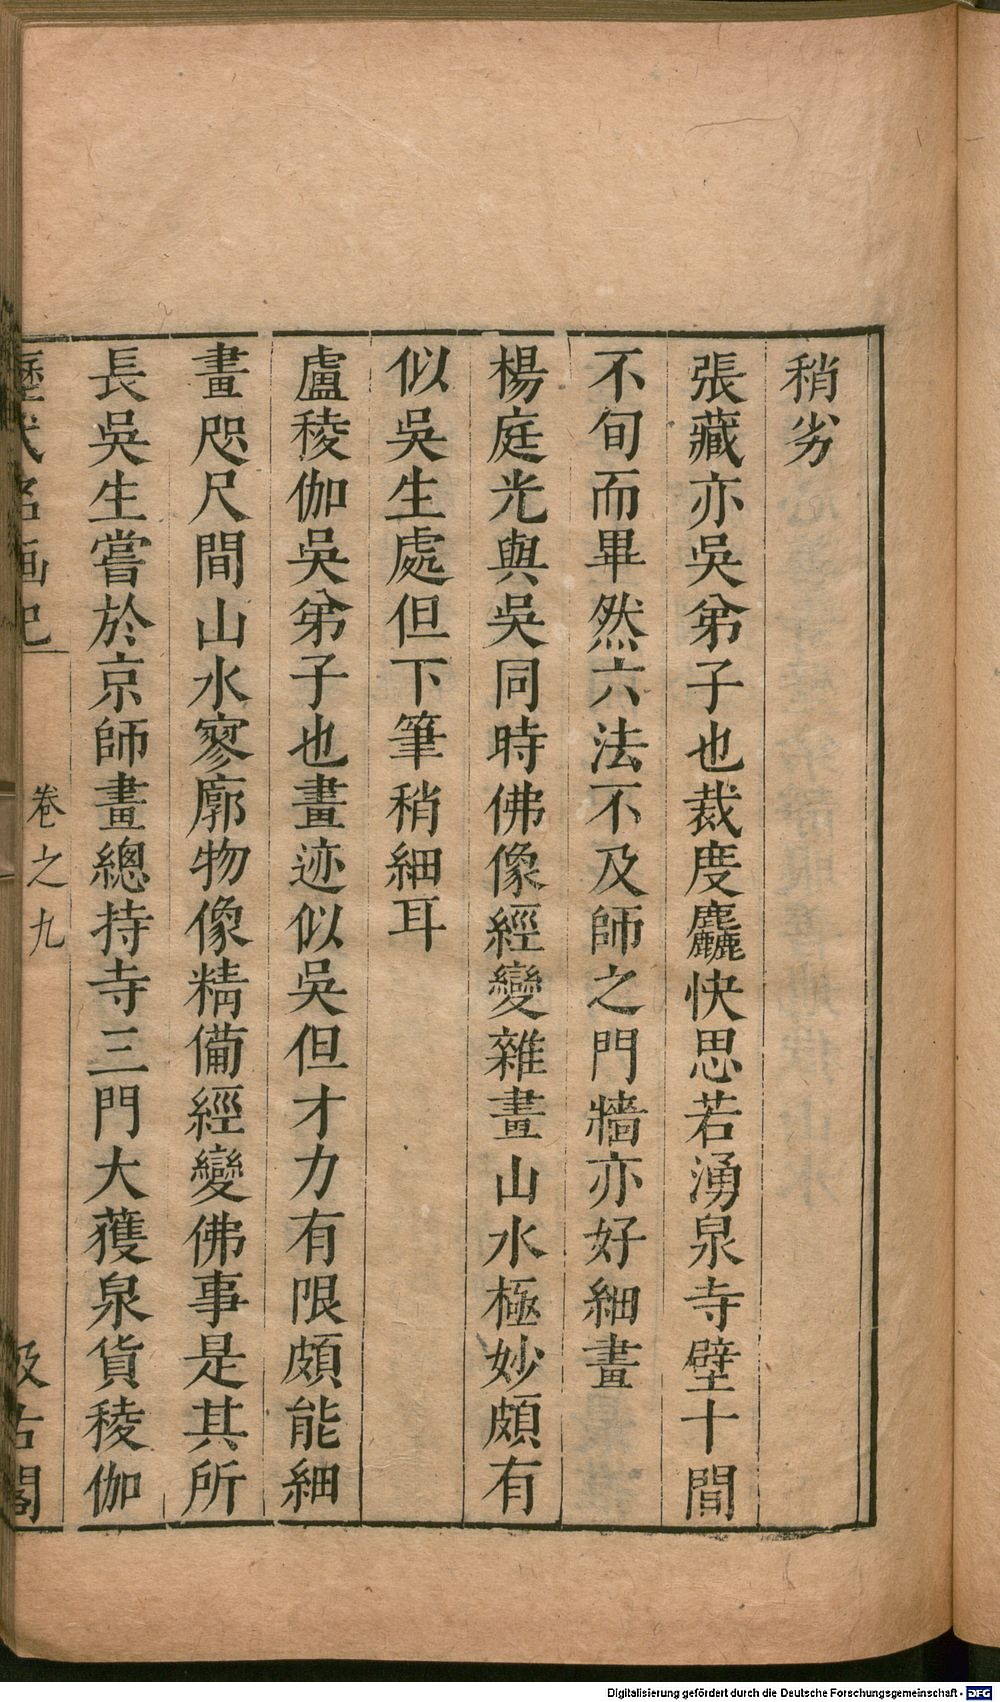 稍劣
張藏亦吳弟子也裁度麤快思若湧泉寺壁十間
不旬而畢然六法不及師之門牆亦好細畫
楊庭光與吳同時佛像經變雜畫山水極妙頗有
似吳生處但下筆稍細耳
盧稜伽吳弟子也畫迹似吳但才力有限頗能細
畫咫尺間山水寥廓物像精備經變佛事是其所
長吳生嘗於京師畫總持寺三門大獲泉貨稜伽
歷代名画記 卷之九 汲古閣
Digitalisierung gefördert durch die Deutsche Forschungsgemeinschaft - DFG